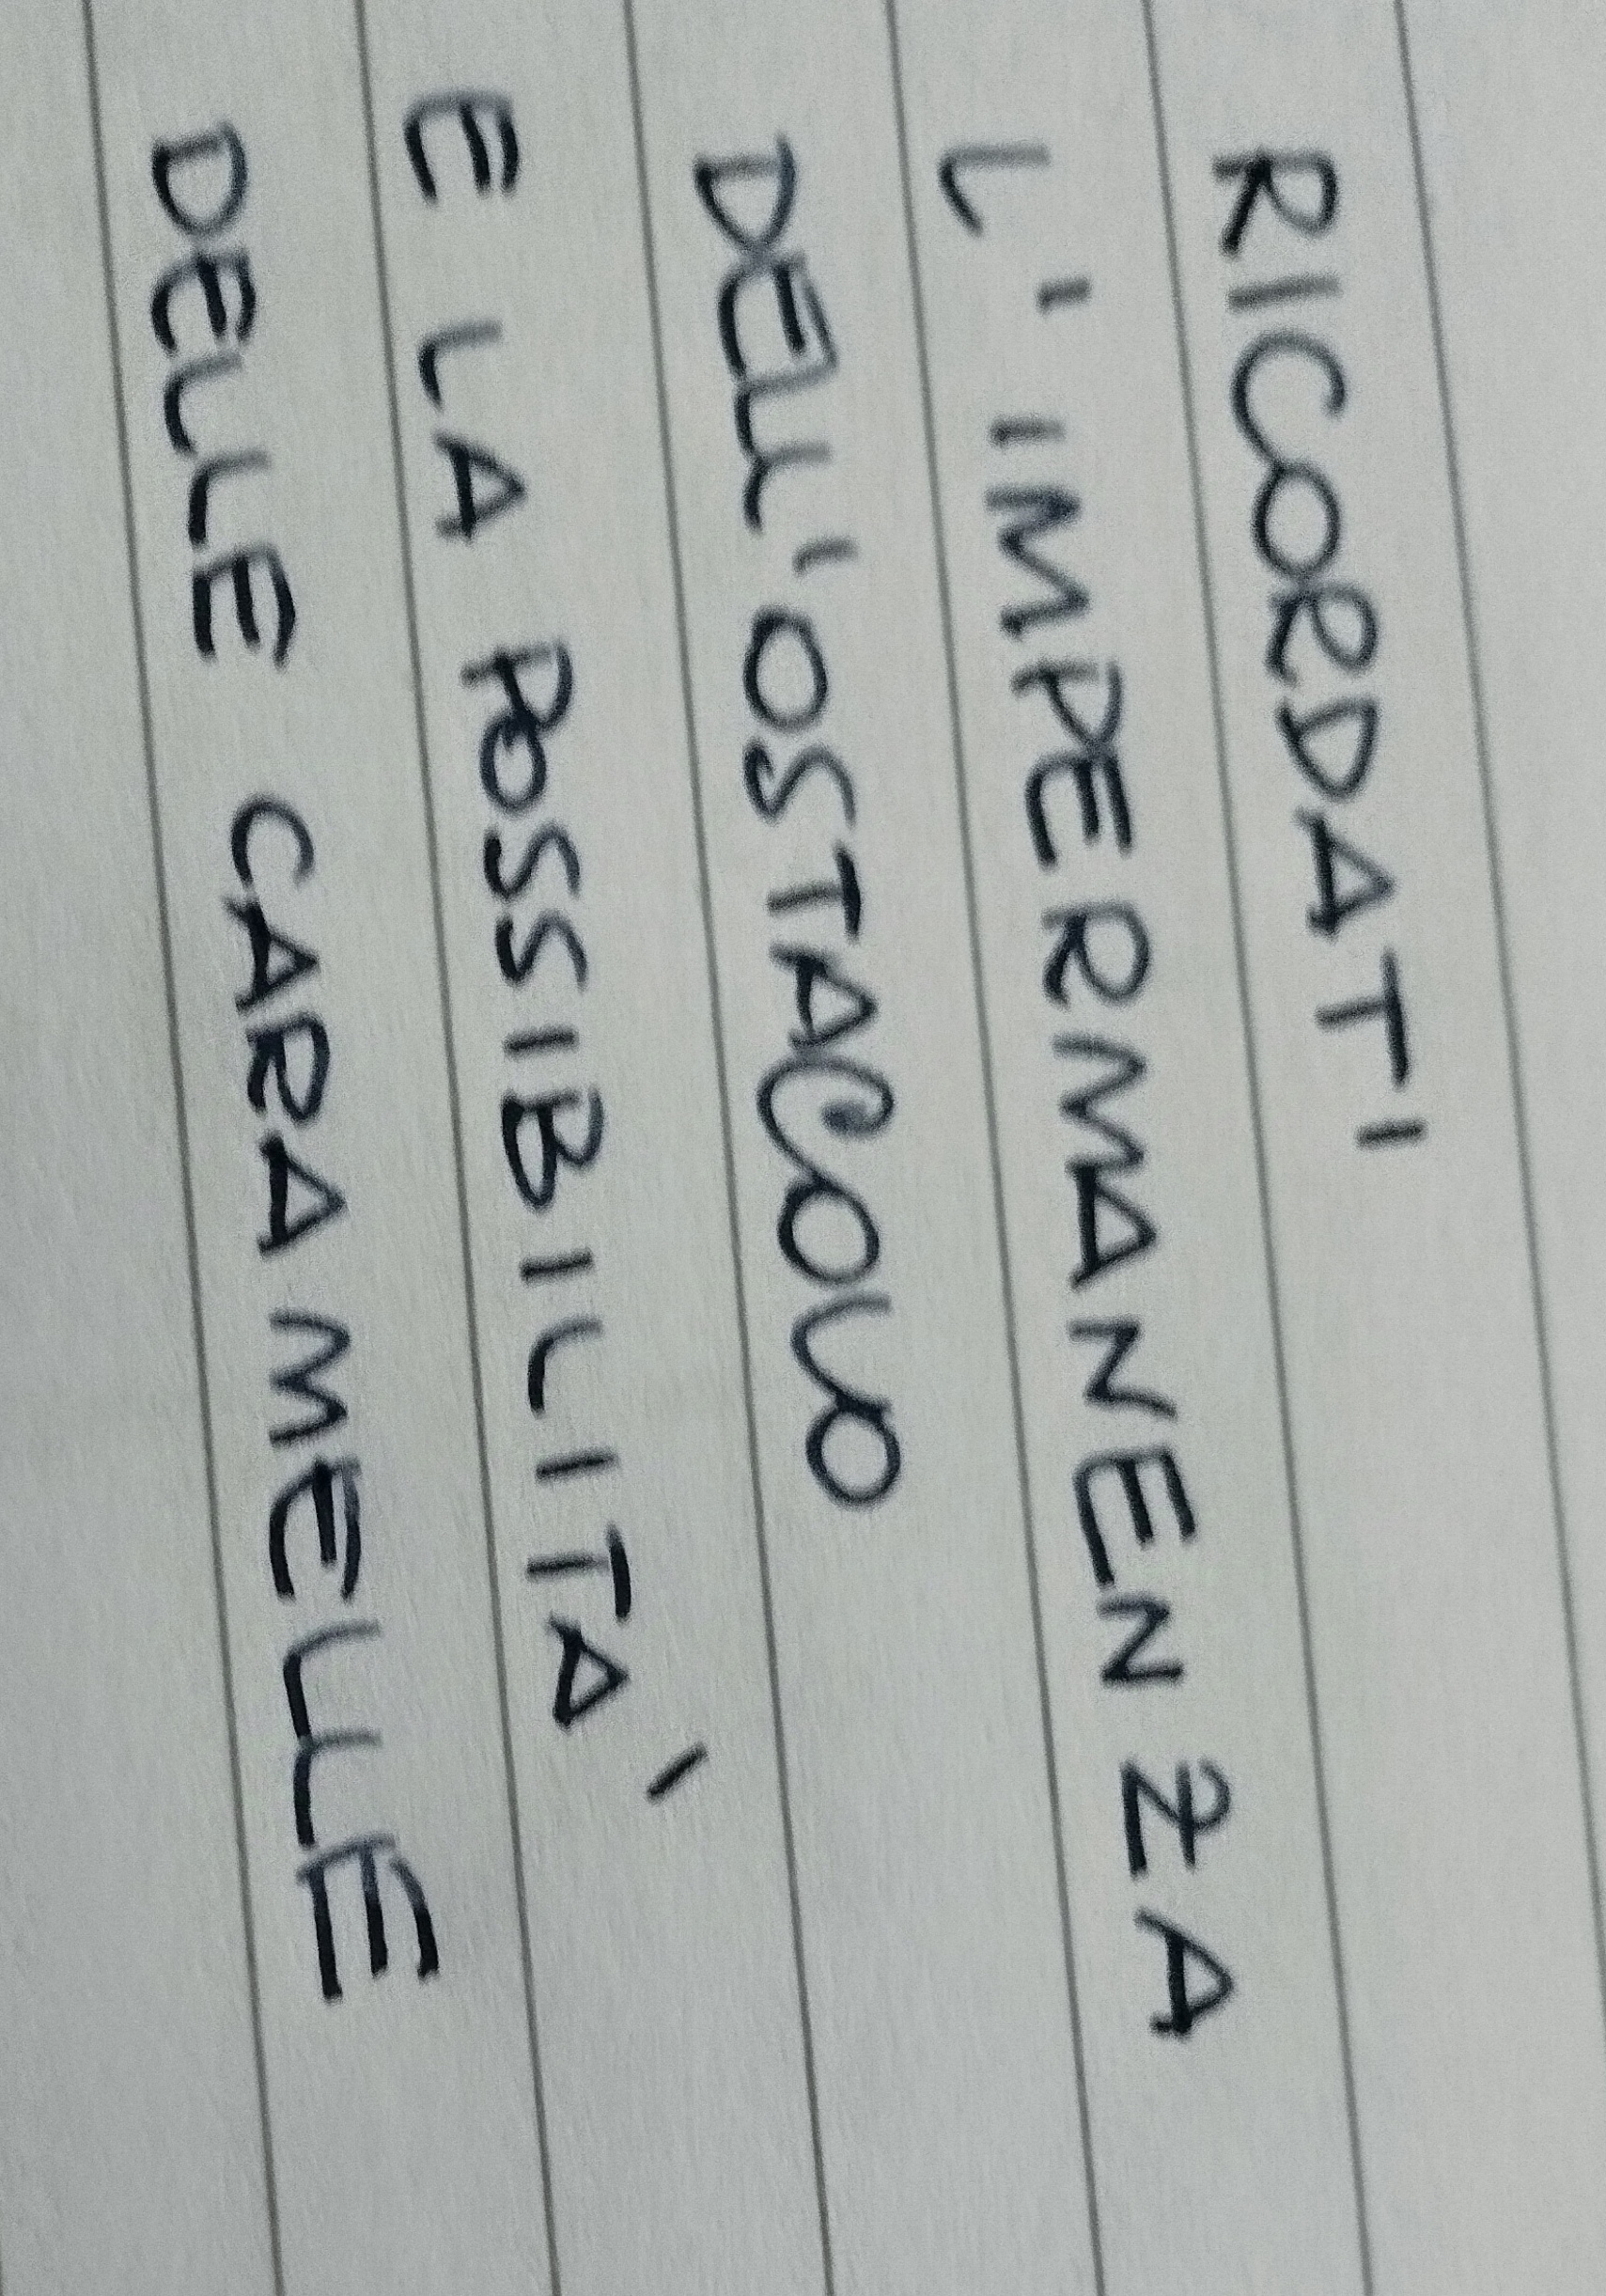 RICORDATI
L'IMPERMANENZA
DELL'OSTACOLO
E LA POSSIBILITA'
DELLE CARAMELLE